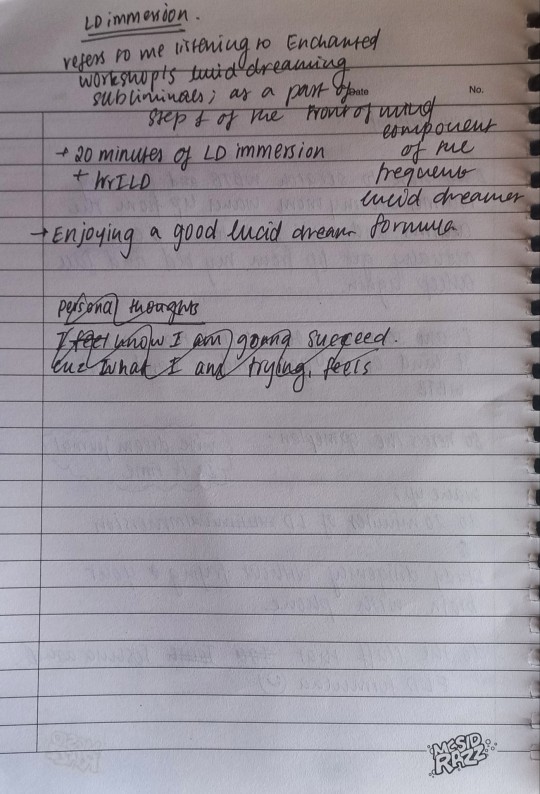 LD immersion.
refers to me listening to Enchanted
workshop's lucid dreaming
subliminals; as a part of
Date
No.
step 1 of the front of mind
component
of the
frequent
lucid dreamer
formula
→ 20 minutes of LD immersion
+ WILD
→ Enjoying a good lucid dream
personal thoughts
I feel know I am gonna succeed.
cuz what I am trying, feels
MCSID
RAZZ